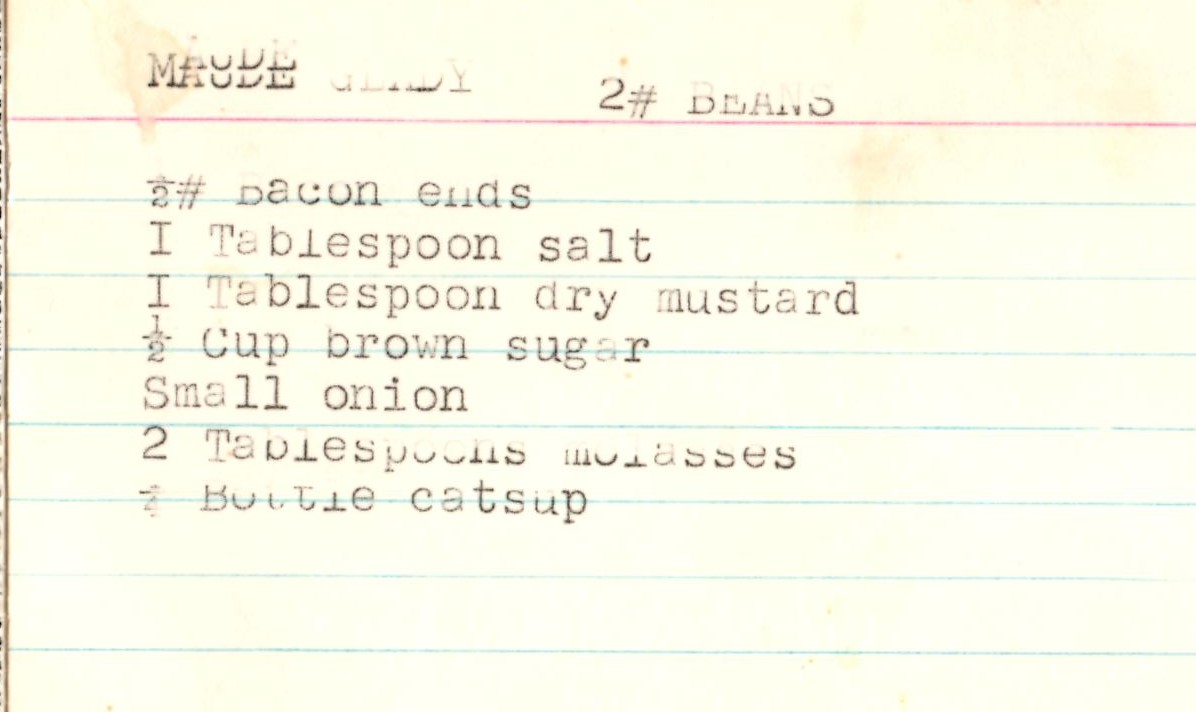 MAUDE 2# BEANS
½# Bacon ends
I Tablespoon salt
I Tablespoon dry mustard
½ Cup brown sugar
Small onion
2 Tablespoons molasses
Bottle catsup